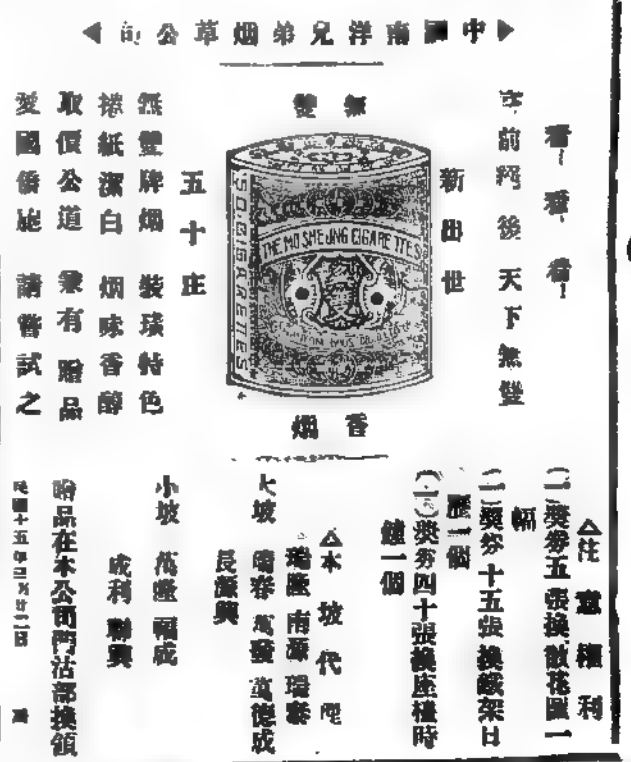 中國南洋兄弟烟草公司
看！看！看！
空前絕後天下無雙
新出世
無雙
THE MO SHEUNG CIGARETTES
50 CIGARETTES
無雙
香烟
五十庄
無雙牌烟 裝璜特色
捲紙潔白 烟味香醇
取價公道 兼有贈品
愛國僑胞 請嘗試之
△注意權利
(一)獎券五張換散花圖一幅
(二)獎券十五張換鐵架日歷一個
(三)獎券四十張換座檯時鐘一個
△本坡代理
大坡
瑞隆 南源 瑞泰
晴春 萬發 萬德成
長源興
小坡 萬隆 福成
成利 聯興
贈品在本公司門沽部換領
民國十五年三月廿二日